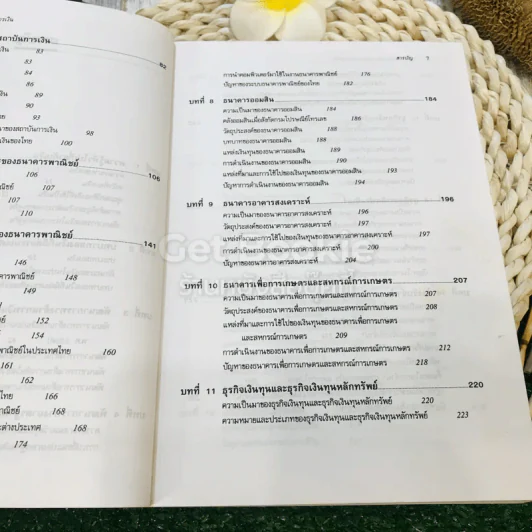 ถาบันการเงิน 82
เงิน 83
83
84
86
เงิน 89
90
เงิน 93
าของสถาบันการเงิน 98
เงินของไทย 100
ของธนาคารพาณิชย์ 106
106
ชย์ 107
107
110
งธนาคารพาณิชย์ 141
146
คารพาณิชย์ 148
149
152
154
พาณิชย์ในประเทศไทย 160
161
162
ไทย 166
ณิชย์ 168
ะต่างประเทศ 168
174
สารบัญ
การนำคอมพิวเตอร์มาใช้ในงานธนาคารพาณิชย์ 176
ปัญหาของระบบธนาคารพาณิชย์ของไทย 182
บทที่ 8 ธนาคารออมสิน 184
ความเป็นมาของธนาคารออมสิน 184
คลังออมสินเมื่อสังกัดกรมไปรษณีย์โทรเลข 186
วัตถุประสงค์ของธนาคารออมสิน 188
บทบาทของธนาคารออมสิน 188
แหล่งเงินทุนของธนาคารออมสิน 189
การดำเนินงานของธนาคารออมสิน 190
แหล่งที่มาและการใช้ไปของเงินทุนของธนาคารออมสิน 193
ปัญหาการดำเนินงานของธนาคารออมสิน 194
บทที่ 9 ธนาคารอาคารสงเคราะห์ 196
ความเป็นมาของธนาคารอาคารสงเคราะห์ 196
วัตถุประสงค์ของธนาคารอาคารสงเคราะห์ 197
แหล่งที่มาและการใช้ไปของเงินทุนของธนาคารอาคารสงเคราะห์ 197
การดำเนินงานของธนาคารอาคารสงเคราะห์ 200
ปัญหาของธนาคารอาคารสงเคราะห์ 204
บทที่ 10 ธนาคารเพื่อการเกษตรและสหกรณ์การเกษตร 207
ความเป็นมาของธนาคารเพื่อการเกษตรและสหกรณ์การเกษตร 207
วัตถุประสงค์ของธนาคารเพื่อการเกษตรและสหกรณ์การเกษตร 208
แหล่งที่มาและการใช้ไปของเงินทุนของธนาคารเพื่อการเกษตร
และสหกรณ์การเกษตร 209
การดำเนินงานของธนาคารเพื่อการเกษตรและสหกรณ์การเกษตร 212
ปัญหาของธนาคารเพื่อการเกษตรและสหกรณ์การเกษตร 218
บทที่ 11 ธุรกิจเงินทุนและธุรกิจเงินทุนหลักทรัพย์ 220
ความเป็นมาของธุรกิจเงินทุนและธุรกิจเงินทุนหลักทรัพย์ 220
ความหมายและประเภทของธุรกิจเงินทุนและธุรกิจเงินทุนหลักทรัพย์ 223